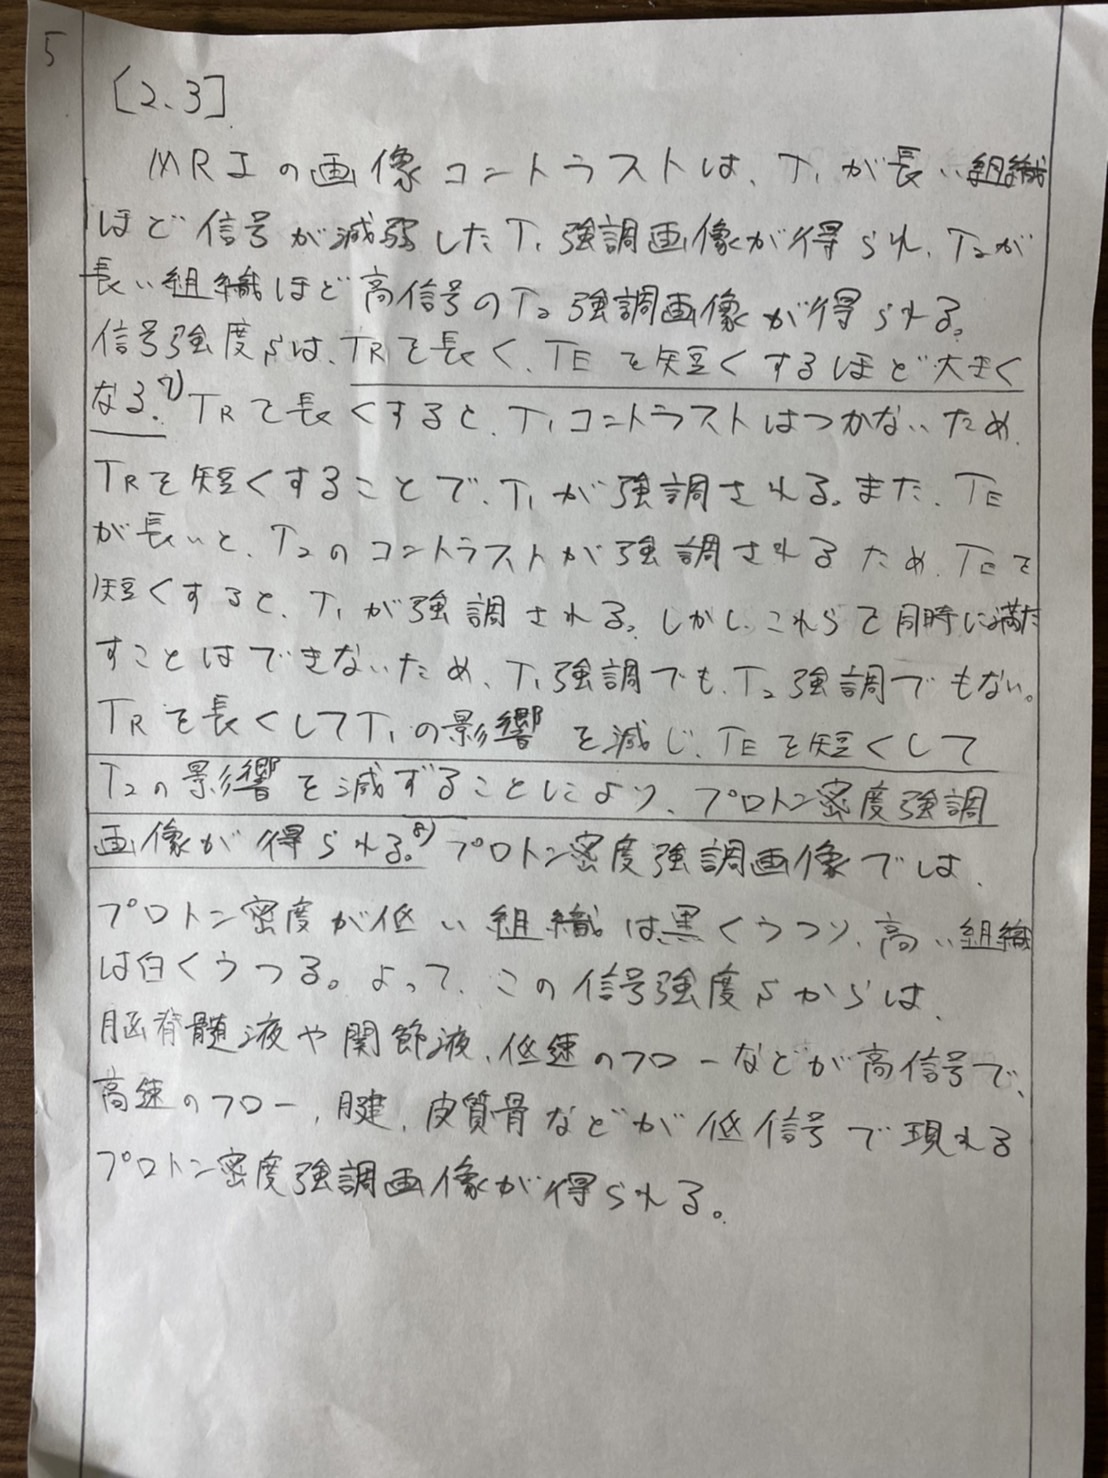 5
[2.3]
MRIの画像コントラストは、T₁が長い組織
ほど信号が減弱したT₁強調画像が得られ、T₂が
長い組織ほど高信号のT₂強調画像が得られる。
信号強度Sは、TRを長く、TEを短くするほど大きく
なる。7) TRを長くすると、T₁コントラストはつかないため、
TRを短くすることで、T₁が強調される。また、TE
が長いと、T₂のコントラストが強調されるため、TEを
短くすると、T₁が強調される。しかし、これらを同時に満た
すことはできないため、T₁強調でも、T₂強調でもない。
TRを長くしてT₁の影響を減じ、TEを短くして
T₂の影響を減ずることにより、プロトン密度強調
画像が得られる。8) プロトン密度強調画像では、
プロトン密度が低い組織は黒くうつり、高い組織
は白くうつる。よって、この信号強度Sからは、
脳脊髄液や関節液、低速のフローなどが高信号で、
高速のフロー、腱、皮質骨などが低信号で現れる
プロトン密度強調画像が得られる。